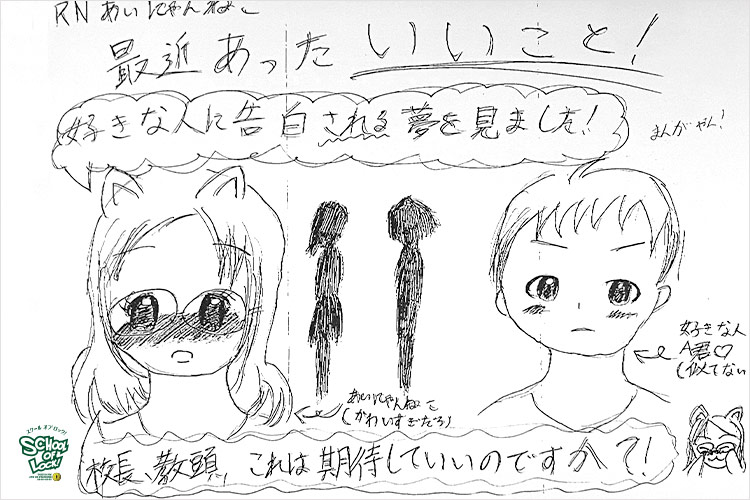 RN あいにゃんねこ
最近あったいいこと!
好きな人に告白される夢を見ました!
まんがやん!
好きな人
A君♡
(似てない
あいにゃんねこ
(かわいすぎだろ)
スクール オブ ロック!
SCHOOL
OF
LOCK!
校長、教頭、これは期待していいのですか?!